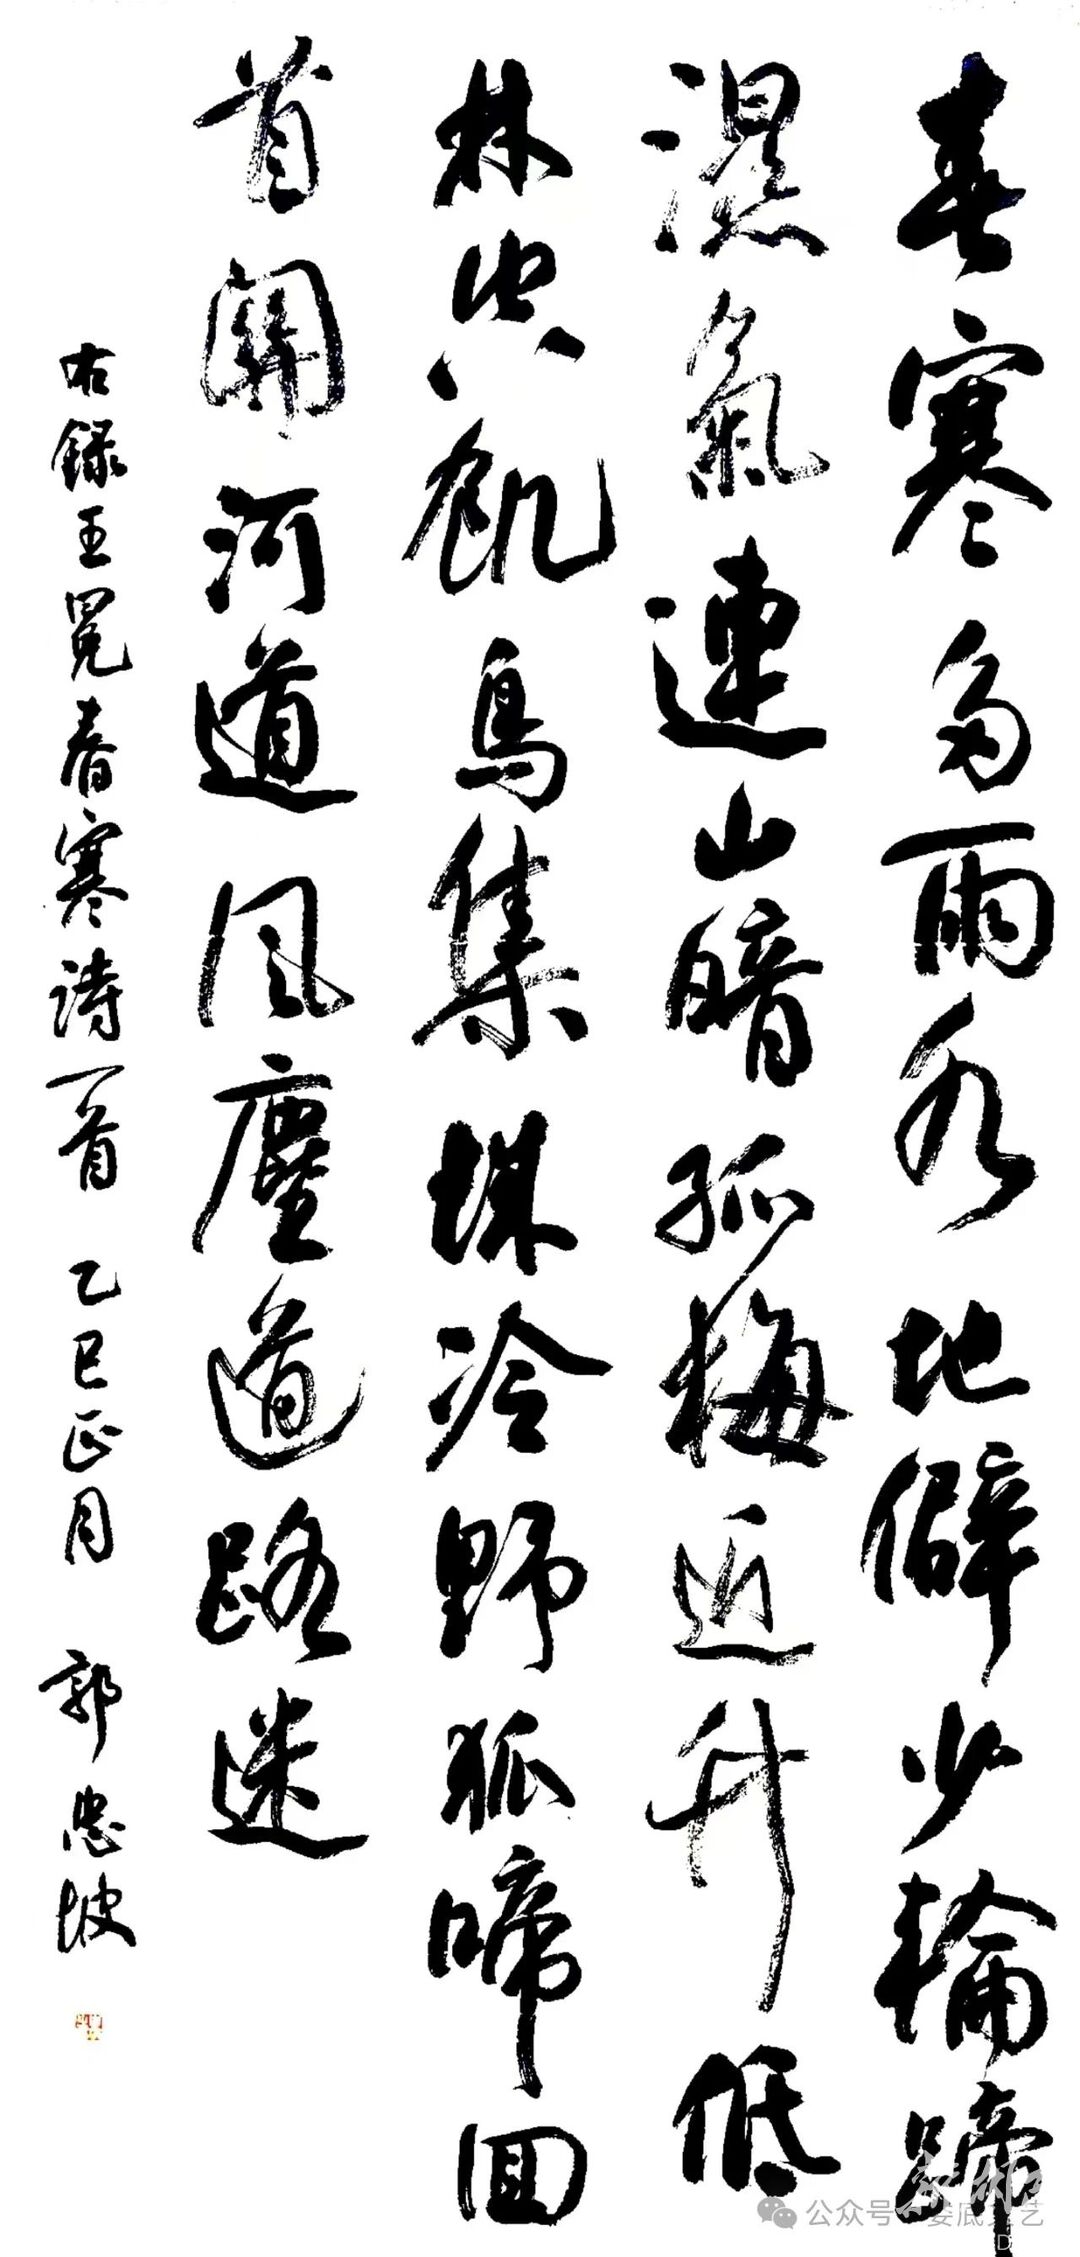 春寒多雨水地僻少輪蹄
濕氣連山暗孤梅近升低
林空飢鳥集城冷野狐啼回
首關河道風塵道路迷
右録王冕春寒詩一首 乙巳正月 郭忠坡
公众号·娄底文艺